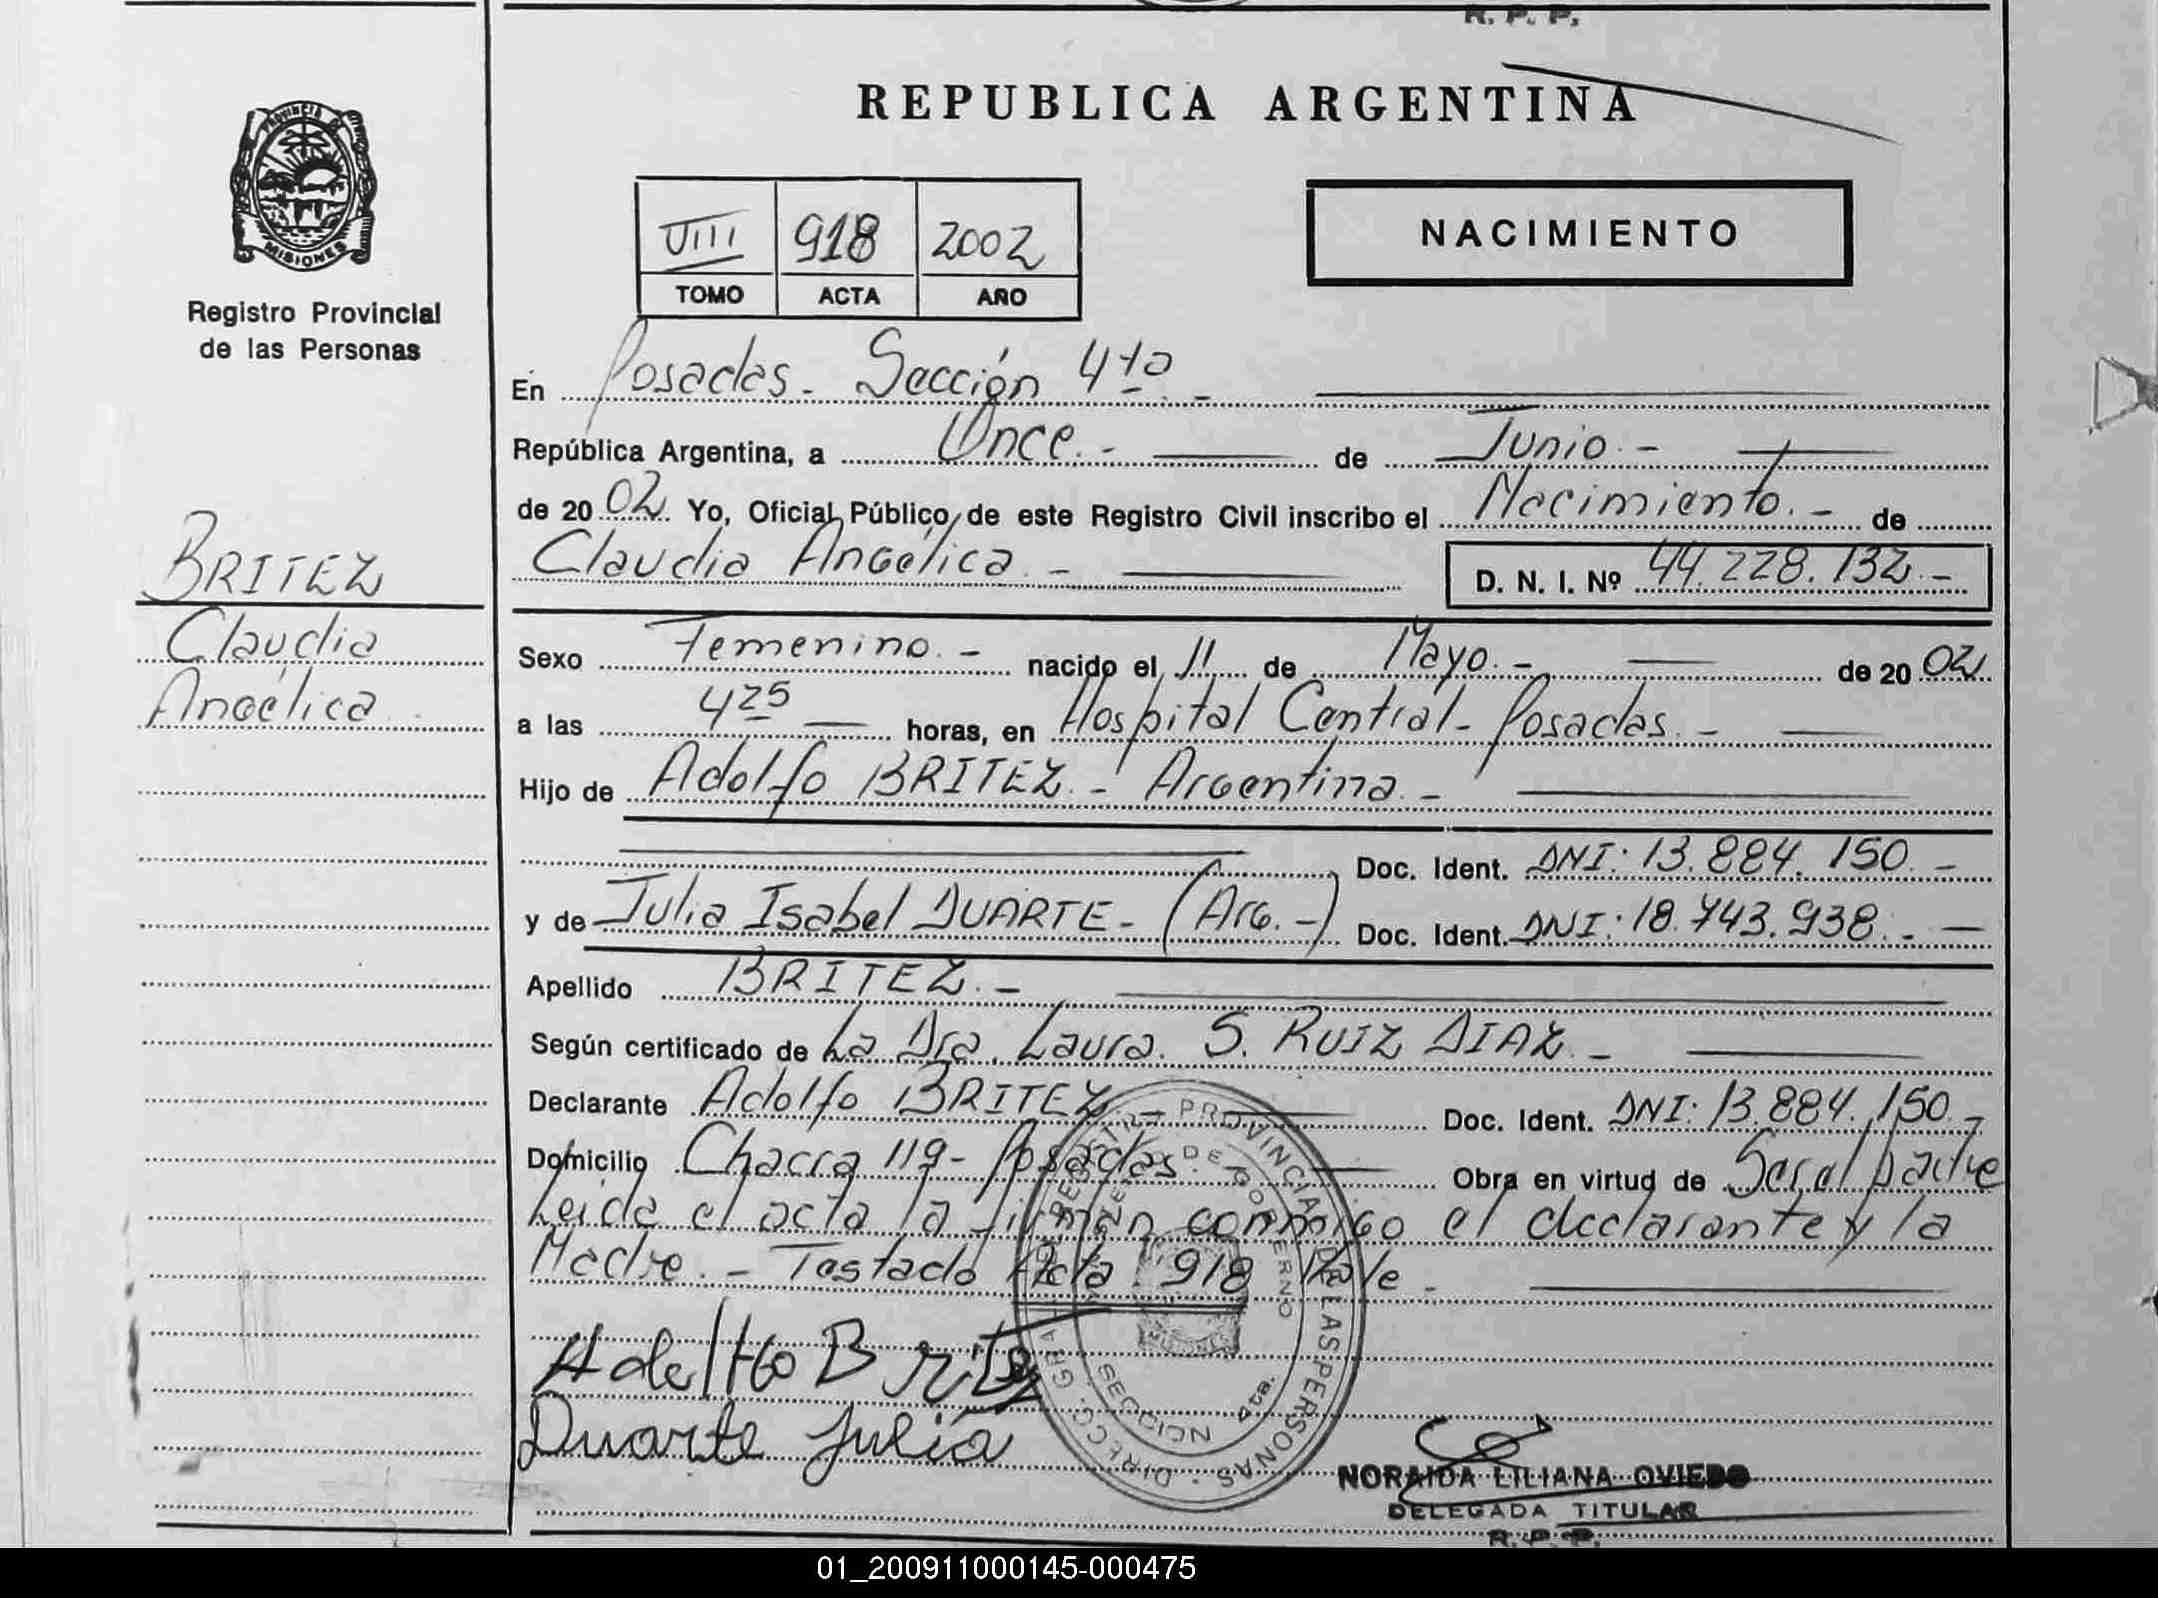 R. P. P.
REPUBLICA ARGENTINA
PROVINCIA DE
MISIONES
Registro Provincial
de las Personas
VIII 918 2002
TOMO ACTA AÑO
NACIMIENTO
En Posadas - Sección 4ta. -
República Argentina, a Once. - de Junio. -
de 2002. Yo, Oficial Público, de este Registro Civil inscribo el Nacimiento. - de
Claudia Angélica. - D. N. I. Nº 44.228.132. -
BRITEZ
Claudia
Angélica
Sexo Femenino. - nacido el 11 de Mayo. - de 2002
a las 4 25 horas, en Hospital Central - Posadas. -
Hijo de Adolfo BRITEZ. - Argentina. -
Doc. Ident. DNI: 13.884.150. -
y de Julia Isabel DUARTE - (Arg. -) Doc. Ident. DNI: 18.743.938. -
Apellido BRITEZ. -
Según certificado de La Dra. Laura. S. RUIZ DIAZ. -
Declarante Adolfo BRITEZ - Doc. Ident. DNI: 13.884.150. -
Domicilio Chacra 119 - Posadas. - Obra en virtud de Ser el padre
Leida el acta la firman conmigo el declarante y la
Madre. - Testado Acta 918 Vale. -
Duarte Julia
PROVINCIAL DE LAS PERSONAS
DE GOBIERNO
SECCION 4ta.
NORAIDA LILIANA OVIEDO
DELEGADA TITULAR
R. P. P.
01_200911000145-000475